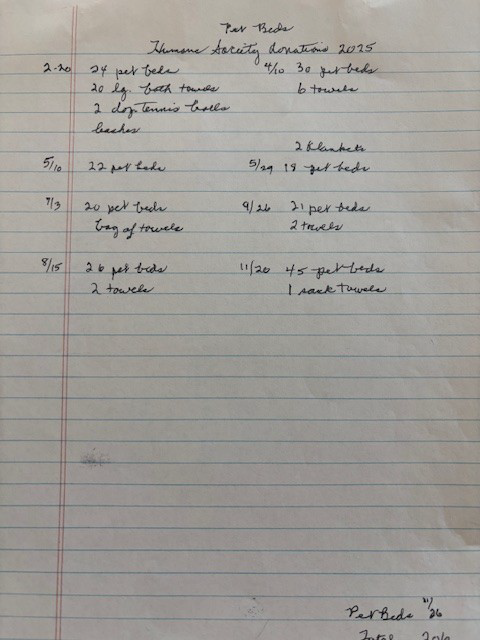 Pet Beds
Humane Society donations 2025
2-20 24 pet beds 4/10 30 pet beds
20 lg. bath towels 6 towels
2 doz tennis balls
leashes
2 blankets
5/10 22 pet beds 5/29 18 pet beds
20 pet beds 9/26 21 pet beds
bag of towels 2 towels
8/15 26 pet beds 11/20 45 pet beds
2 towels 1 sack towels
Pet Beds
Total